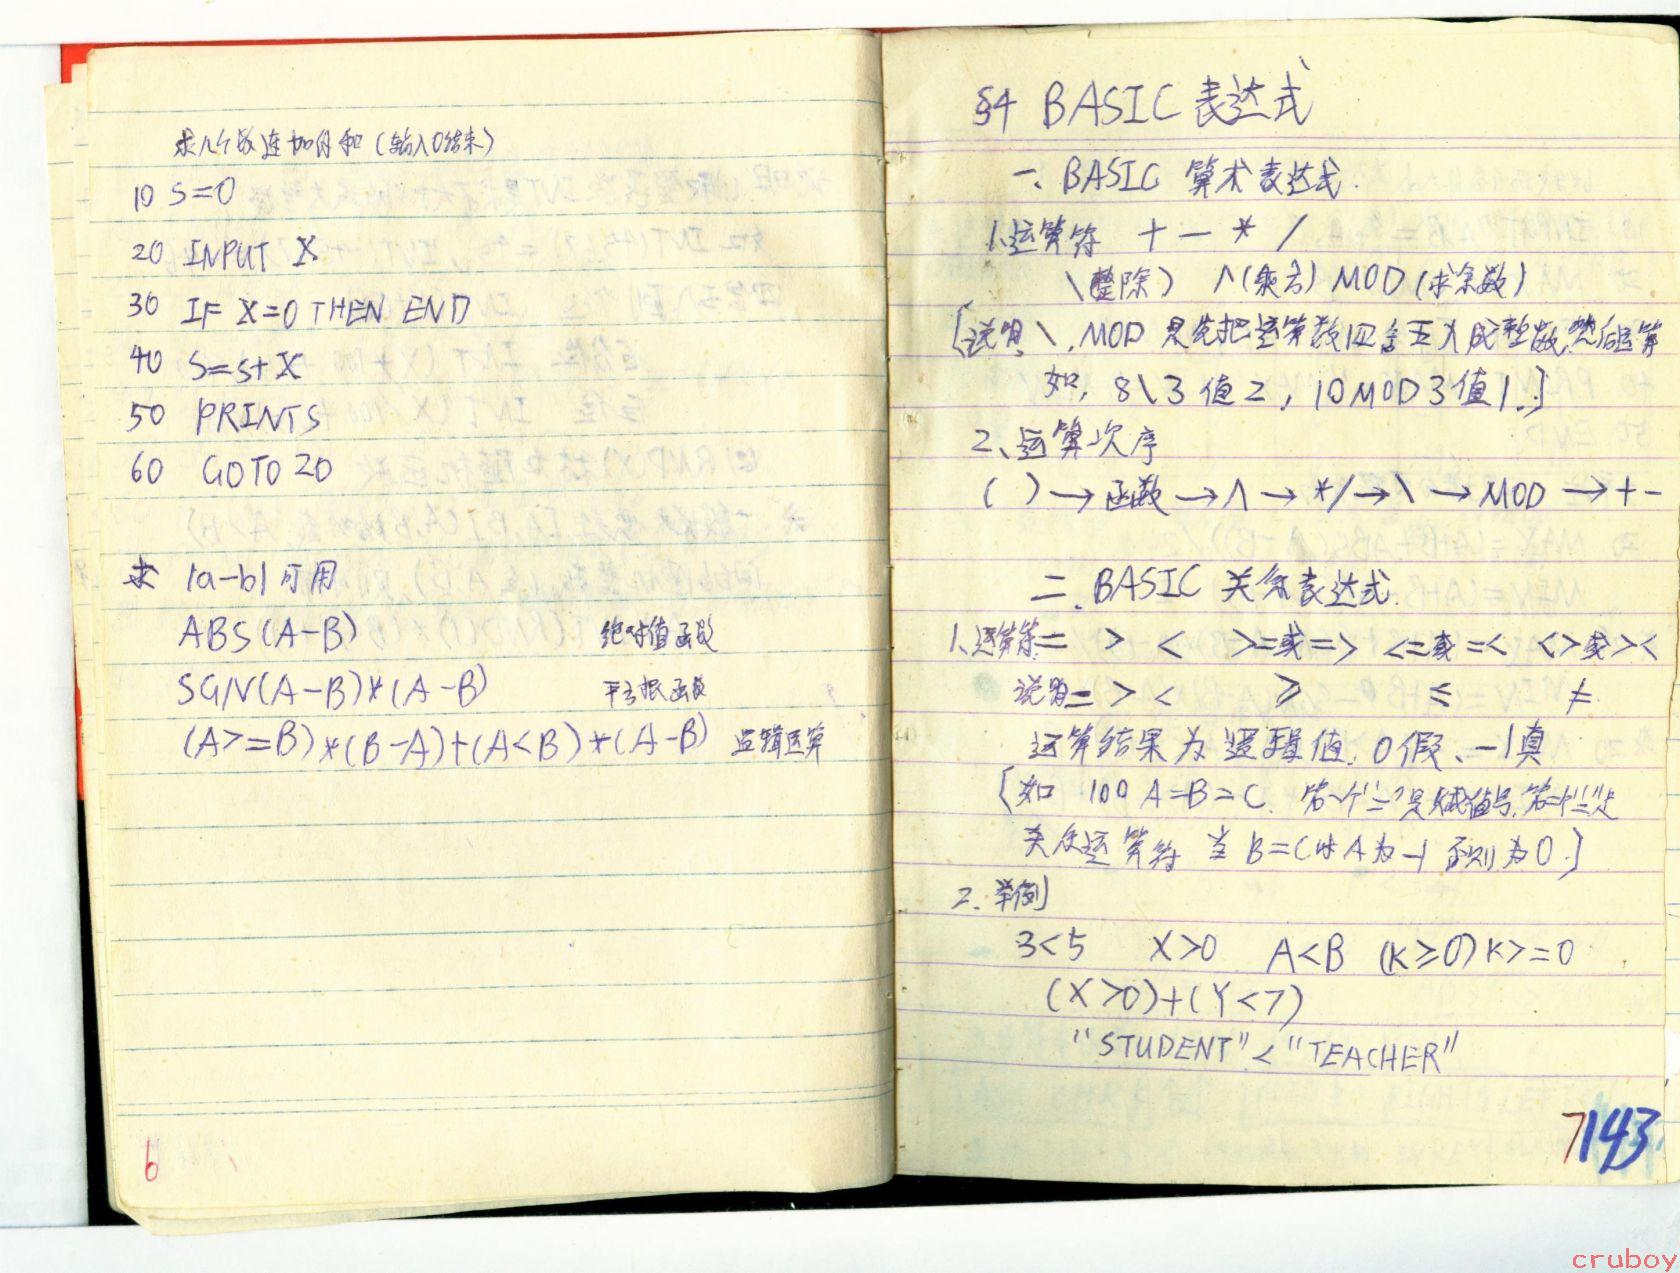 求几个数连加月和(输入0结束)
10 S=0
20 INPUT X
30 IF X=0 THEN END
40 S=S+X
50 PRINTS
60 GOTO 20
求 |a-b| 可用
ABS(A-B) 绝对值函数
SGN(A-B)*(A-B) 平方根函数
(A>=B)*(B-A)+(A<B)*(A-B) 逻辑运算
6
§4 BASIC 表达式
一、BASIC 算术表达式.
1.运算符 + — * /
\(整除) ∧(乘方) MOD (求余数)
[说明、\,MOD 是先把运算数四舍五入成整数,然后运算
如, 8\3值2, 10MOD3值1.]
2、运算次序
( )→函数→∧→*/→\→MOD→+-
二、BASIC 关系表达式.
1、运算符:= > < >=或=> <=或=< <>或><
说明= > < ≥ ≤ ≠
运算结果为逻辑值,0假、-1真
[如 100 A=B=C. 第一个"="是赋值号,第二个"="是
关系运算符 当B=C时A为-1 否则为0.]
2.举例
3<5 X>0 A<B (K≥0)K>=0
(X>0)+(Y<7)
"STUDENT"<"TEACHER"
7143
cruboy